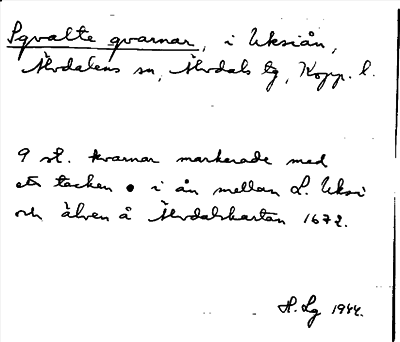 Sqvalte qvarnar, i Uksiån,
Älvdalens sn, Älvdals tg, Kopp. l.
9 st. kvarnar markerade med
ett tecken • i ån mellan L. Uksi
och älven å Älvdalskartan 1672.
H. Lg 1944.